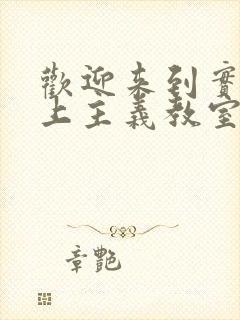 歡迎來到實
上主義教室
章艷